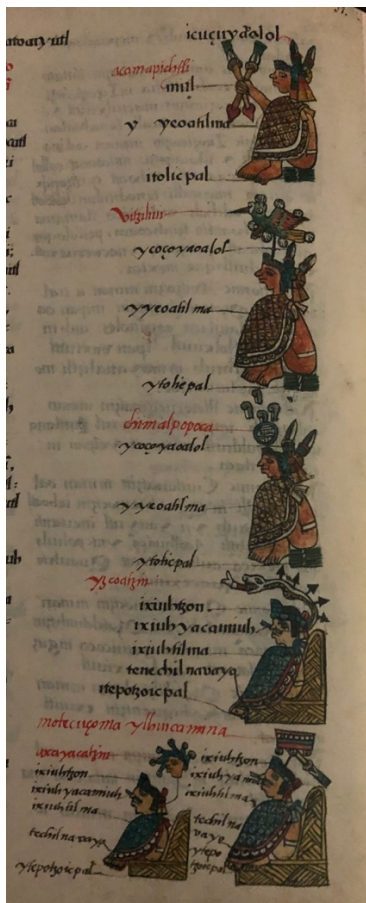 acamapichtli
mitl
y yeoatilma
itolicpal
vitzilin
ycoçoyaoalol
yyeoatilma
ytolicpal
chimalpopoca
ycoçoyaoalol
yyeoatilma
ytolicpal
yzcoatzin
ixiuhtzon
ixiuhyacamiuh
ixiuhtilma
tenechilnavayo
itepotzoicpal
motecuçoma ylhuicamina
axayacatzin
ixiuhtzon
ixiuhyacamiuh
ixiuhtilma
techilnavayo
ytepotzoicpal
ixiuhtzon
ixiuhtilma
techilna
vayo
ytepo
tzoicpal